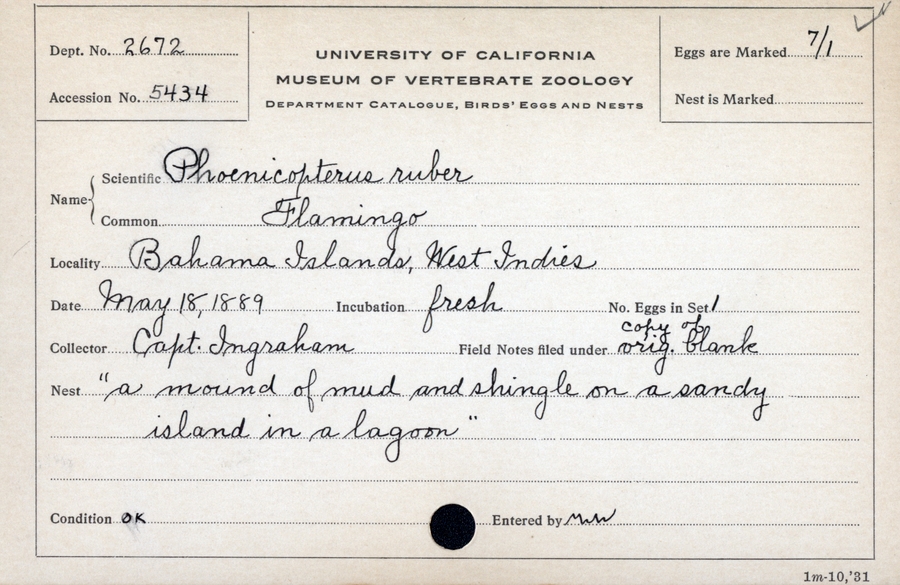 Dept. No. 2672
Accession No. 5434
UNIVERSITY OF CALIFORNIA
MUSEUM OF VERTEBRATE ZOOLOGY
DEPARTMENT CATALOGUE, BIRDS' EGGS AND NESTS
Eggs are Marked 7/1
Nest is Marked
Name
Scientific Phoenicopterus ruber
Common Flamingo
Locality Bahama Islands, West Indies
Date May 18, 1889 Incubation fresh No. Eggs in Set 1
Collector Capt. Ingraham Field Notes filed under copy of orig. blank
Nest "a mound of mud and shingle on a sandy
island in a lagoon"
Condition OK Entered by
1m-10,'31